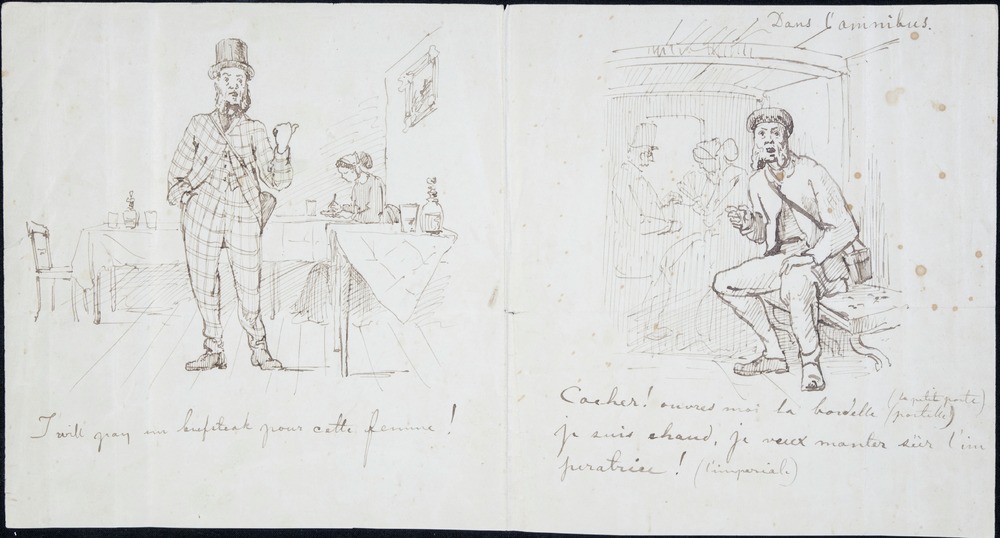 I will pay un beefsteak pour cette femme !
Dans l'omnibus.
Cocher ! ouvres moi la bordelle (la petit porte)
(portelle)
je suis chaud, je veux monter sür l'im
peratrice ! (l'imperiale)